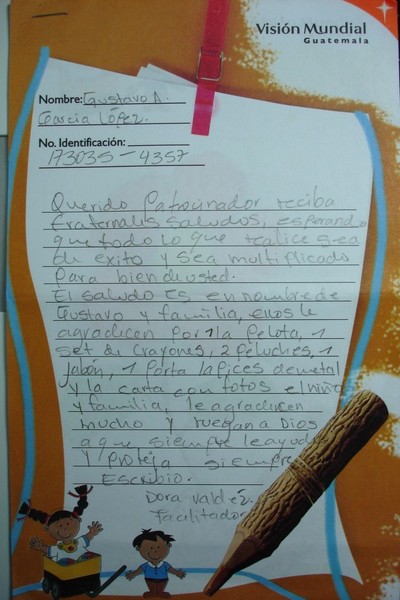 Visión Mundial
Guatemala
Nombre: Gustavo A.
García López.
No. Identificación:
173035-4357
Querido Patrocinador reciba
fraternales saludos, esperando
que todo lo que realice sea
de exito y sea multiplicado
para bien de usted.
El saludo es en nombre de
Gustavo y familia, ellos le
agradecen por 1 la Pelota, 1
set de crayones, 2 peluches, 1
jabón, 1 porta lapices de metal
y la carta con fotos el niño
y familia, le agradecen
mucho y ruegan a Dios
a que siempre le ayude
y proteja siempre
Escribio.
Dora Valdez.
Facilitadora